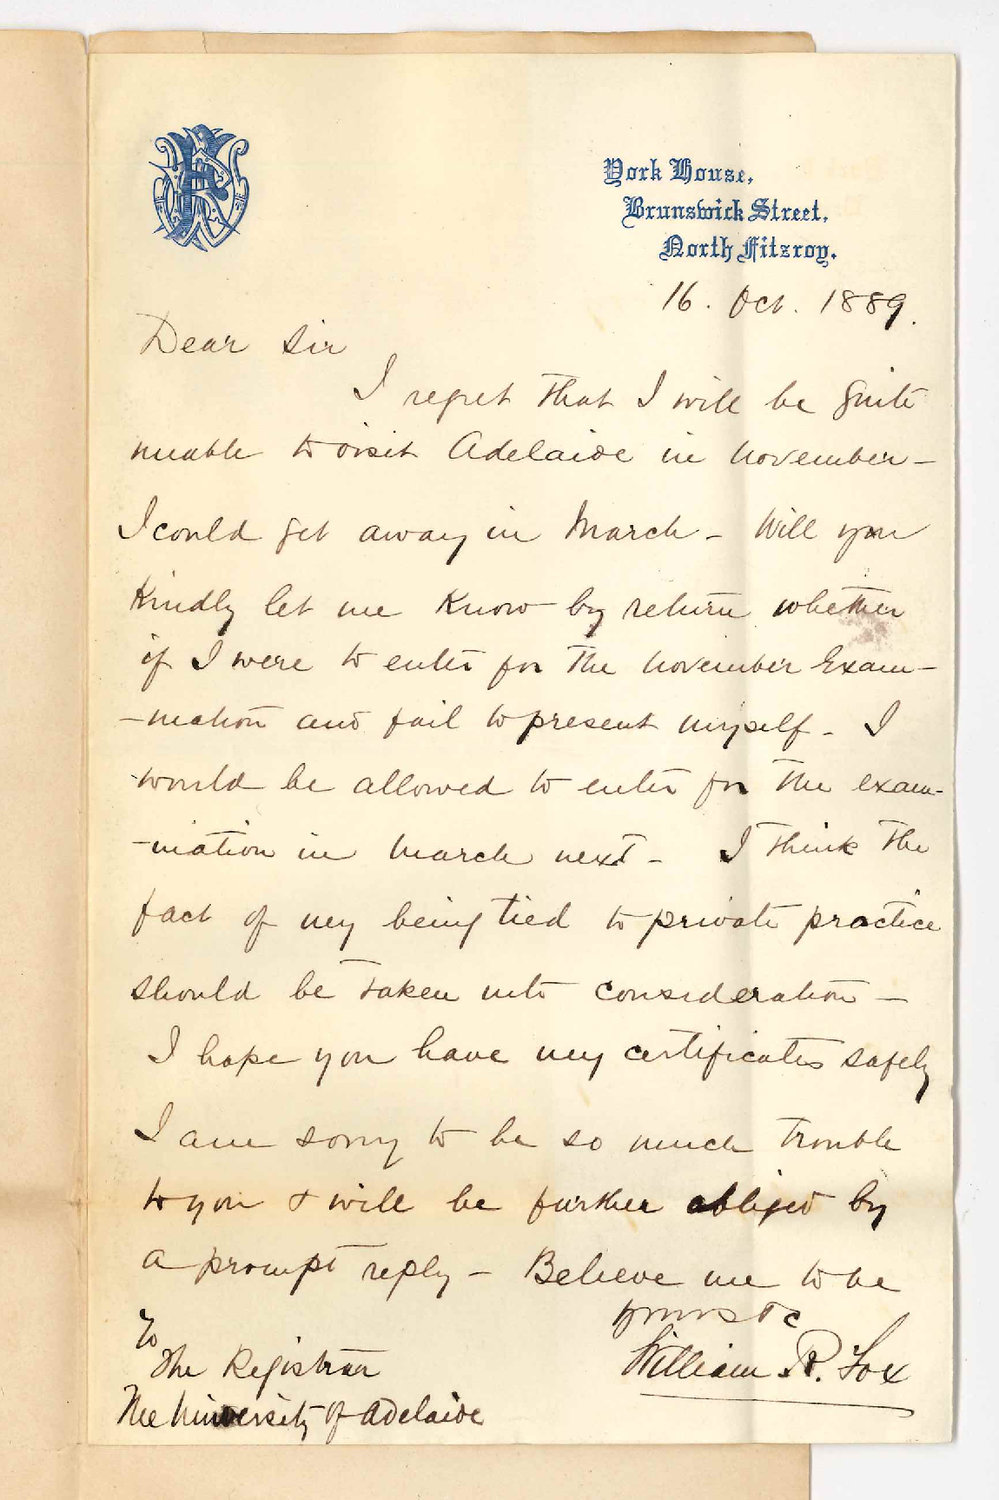 York House,
Brunswick Street,
North Fitzroy.
16. Oct. 1889.
Dear Sir
I regret that I will be quite
unable to visit Adelaide in November –
I could get away in March – Will you
Kindly let me Know by return whether
if I were to enter for the November Exam-
-ination and fail to present myself – I
would be allowed to enter for the exam-
-ination in March next – I think the
fact of my being tied to private practice
should be taken into consideration –
I hope you have my certificates safely
I am sorry to be so much trouble
to you & will be further obliged by
a prompt reply – Believe me to be
yours &c
William R. Fox
To
The Registrar
The University of Adelaide